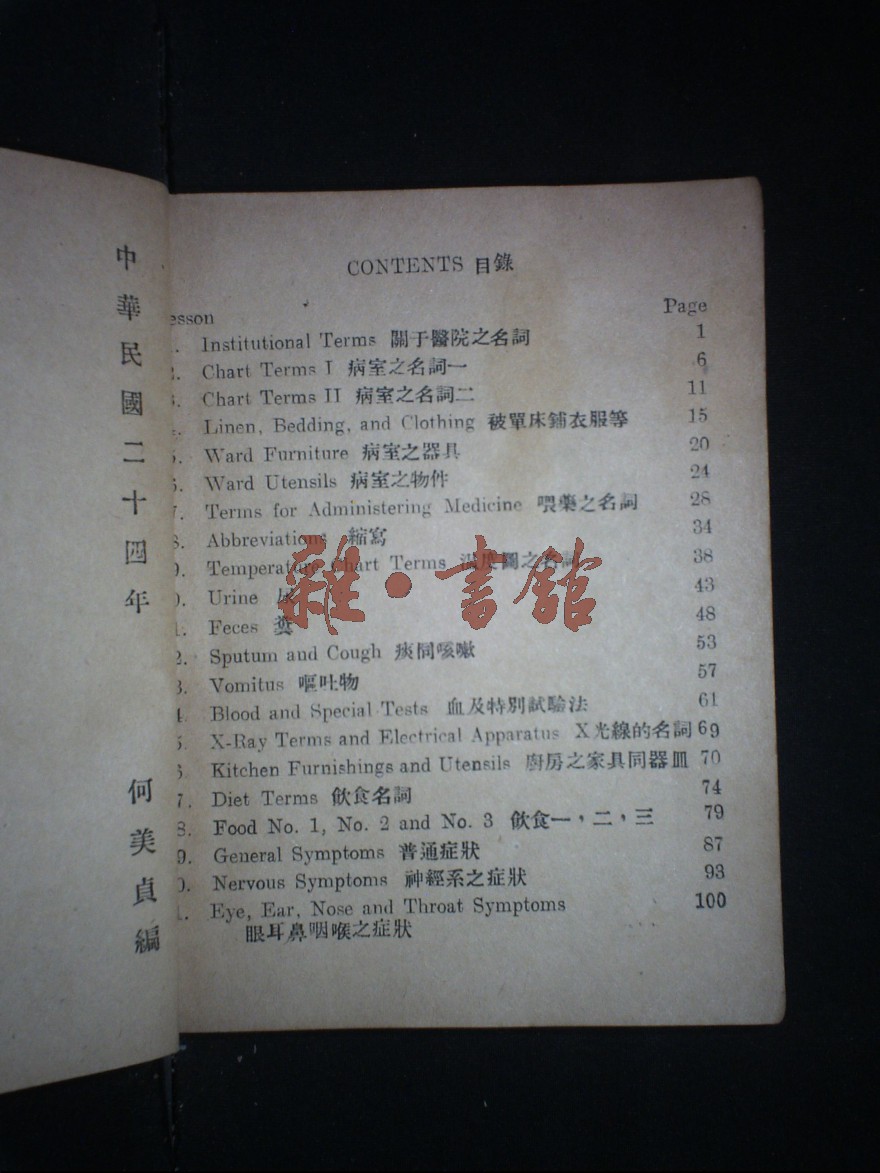 中華民國二十四年
何美貞編
CONTENTS 目錄
esson Page
1. Institutional Terms 關于醫院之名詞 1
2. Chart Terms I 病室之名詞一 6
3. Chart Terms II 病室之名詞二 11
4. Linen, Bedding, and Clothing 被單床鋪衣服等 15
5. Ward Furniture 病室之器具 20
6. Ward Utensils 病室之物件 24
7. Terms for Administering Medicine 喂藥之名詞 28
8. Abbreviations 縮寫 34
9. Temperature Chart Terms 之名詞 38
0. Urine 尿 43
1. Feces 糞 48
2. Sputum and Cough 痰同咳嗽 53
3. Vomitus 嘔吐物 57
4. Blood and Special Tests 血及特別試驗法 61
5. X-Ray Terms and Electrical Apparatus X光線的名詞 69
6 Kitchen Furnishings and Utensils 廚房之家具同器皿 70
7. Diet Terms 飲食名詞 74
8. Food No. 1, No. 2 and No. 3 飲食一，二，三 79
9. General Symptoms 普通症狀 87
0. Nervous Symptoms 神經系之症狀 93
1. Eye, Ear, Nose and Throat Symptoms 100
眼耳鼻咽喉之症狀
雜·書館